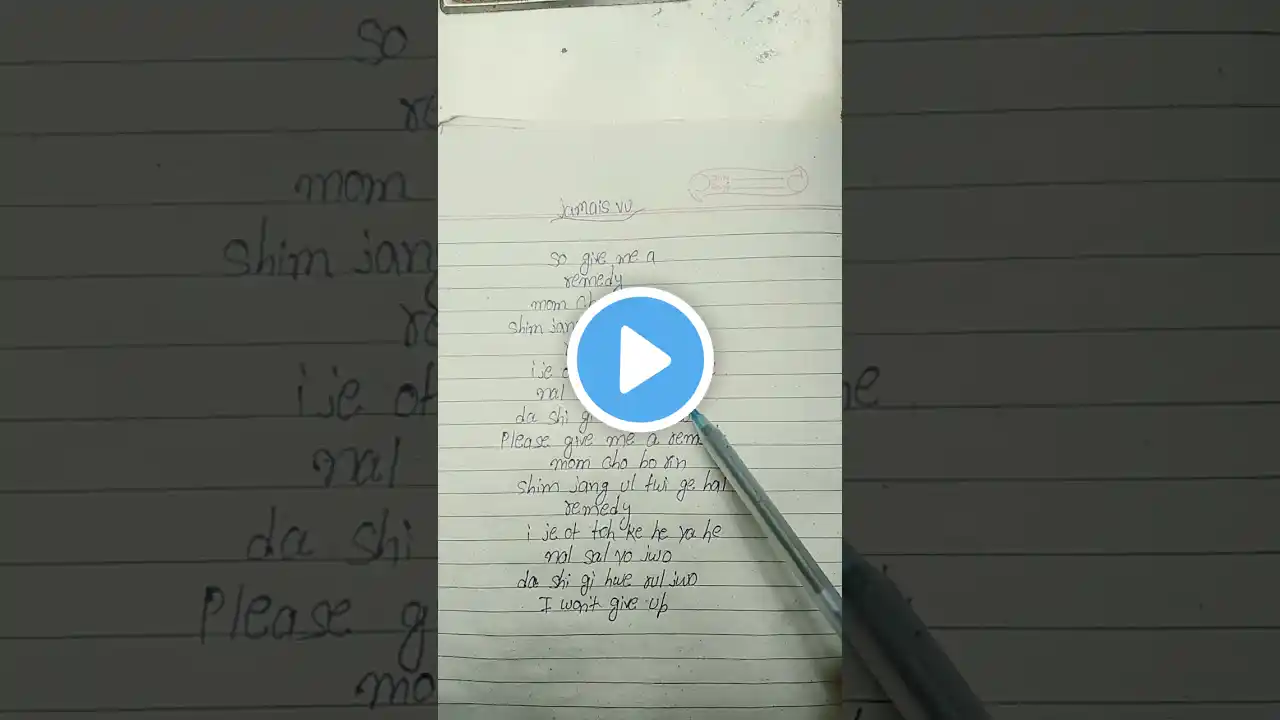 Jamais vu
so give me a
remedy
mom
shim jang
i je
nal
da shi gi
Please give me a
mom cho bo rin
shim jang ul twi ge hal
remedy
i je ot toh ke he ya he
nal sal yo jwo
da shi gi hwe rul jwo
I won't give up